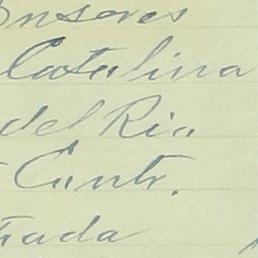 onsores
Catalina
del Rio
Contr.
rada